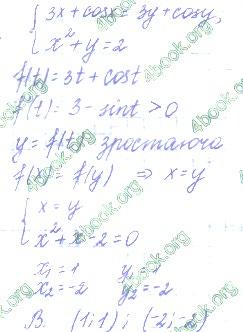 3x + cosx = 3y + cosy,
x² + y = 2
f(t) = 3t + cost
f'(t) = 3 - sint > 0
y = f(t) зростаюча
f(x) = f(y) ⇒ x = y
x = y
x² + x - 2 = 0
x₁ = 1 y₁ = 1
x₂ = -2 y₂ = -2
В. (1; 1); (-2; -2)
4book.org